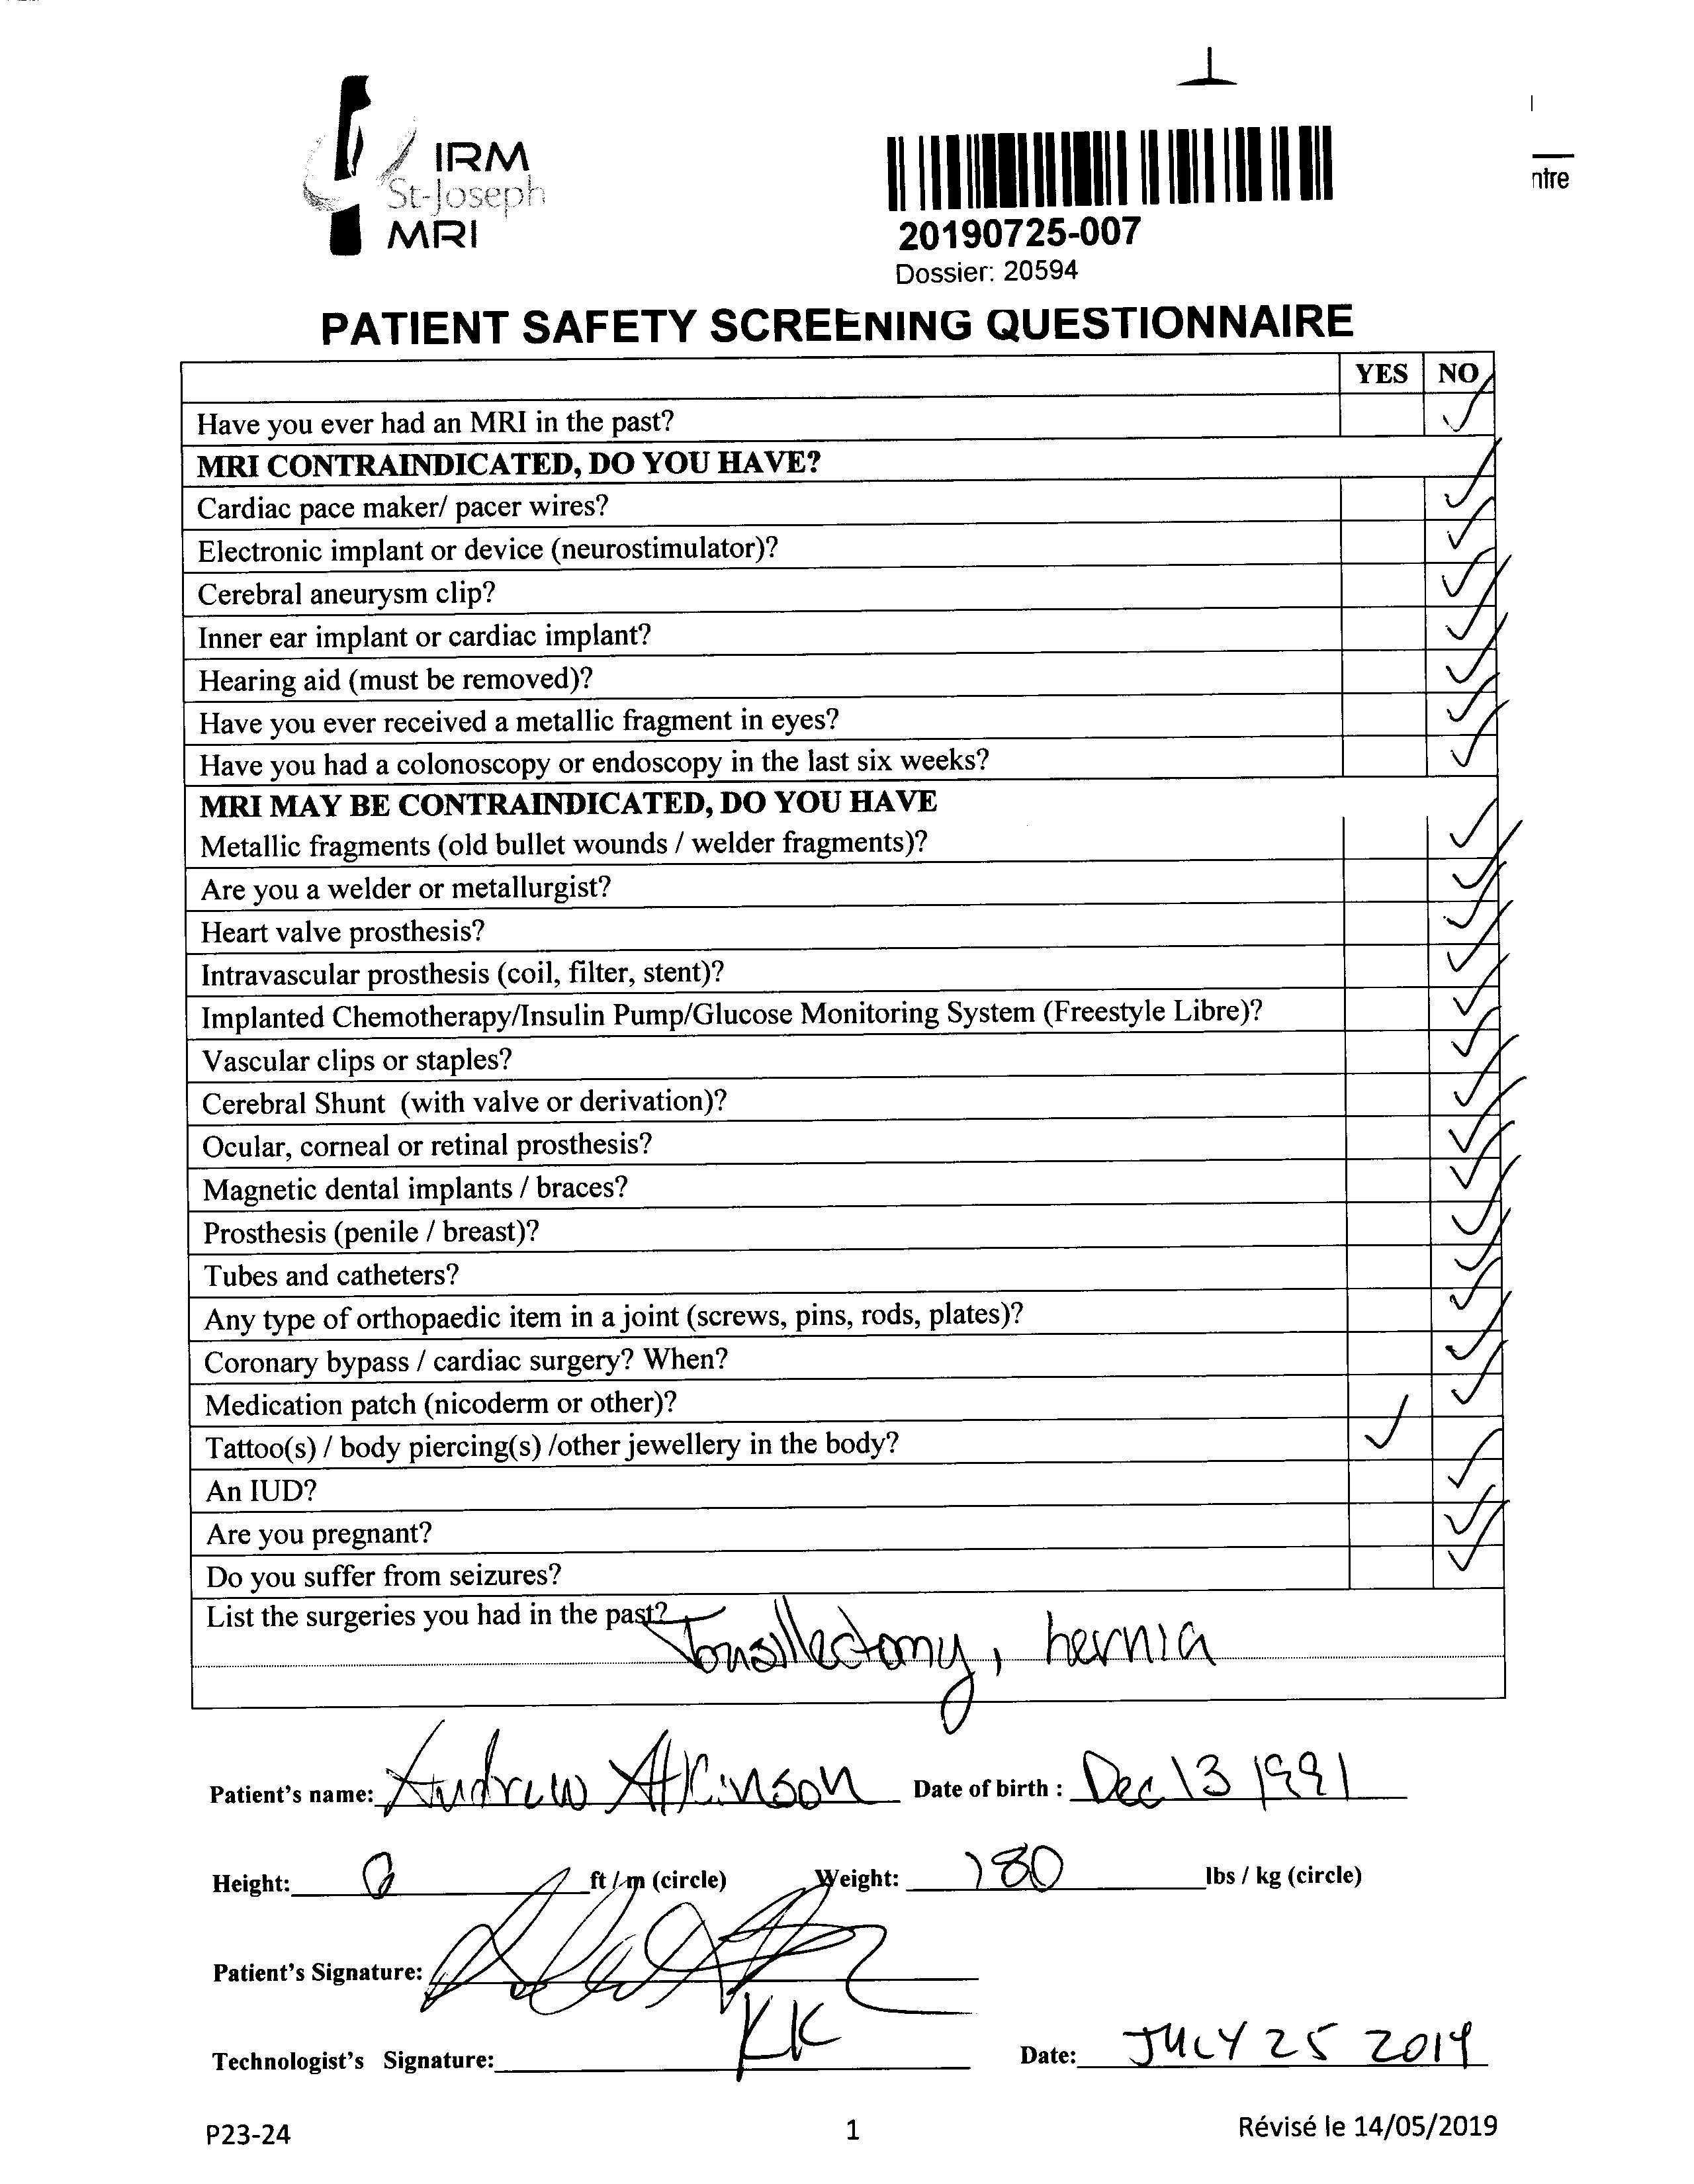 ntre
IRM
St-Joseph
MRI
20190725-007
Dossier: 20594
PATIENT SAFETY SCREENING QUESTIONNAIRE
YES NO
Have you ever had an MRI in the past? ✓
MRI CONTRAINDICATED, DO YOU HAVE?
Cardiac pace maker/ pacer wires? ✓
Electronic implant or device (neurostimulator)? ✓
Cerebral aneurysm clip? ✓
Inner ear implant or cardiac implant? ✓
Hearing aid (must be removed)? ✓
Have you ever received a metallic fragment in eyes? ✓
Have you had a colonoscopy or endoscopy in the last six weeks? ✓
MRI MAY BE CONTRAINDICATED, DO YOU HAVE
Metallic fragments (old bullet wounds / welder fragments)? ✓
Are you a welder or metallurgist? ✓
Heart valve prosthesis? ✓
Intravascular prosthesis (coil, filter, stent)? ✓
Implanted Chemotherapy/Insulin Pump/Glucose Monitoring System (Freestyle Libre)? ✓
Vascular clips or staples? ✓
Cerebral Shunt (with valve or derivation)? ✓
Ocular, corneal or retinal prosthesis? ✓
Magnetic dental implants / braces? ✓
Prosthesis (penile / breast)? ✓
Tubes and catheters? ✓
Any type of orthopaedic item in a joint (screws, pins, rods, plates)? ✓
Coronary bypass / cardiac surgery? When? ✓
Medication patch (nicoderm or other)? ✓
Tattoo(s) / body piercing(s) /other jewellery in the body? ✓
An IUD? ✓
Are you pregnant? ✓
Do you suffer from seizures? ✓
List the surgeries you had in the past? Tonsillectomy, hernia
Patient's name: Andrew Atkinson Date of birth : Dec 13 1991
Height: ft / m (circle) Weight: 180 lbs / kg (circle)
Patient's Signature:
Technologist's Signature: KK Date: JULY 25 2019
P23-24 1 Révisé le 14/05/2019